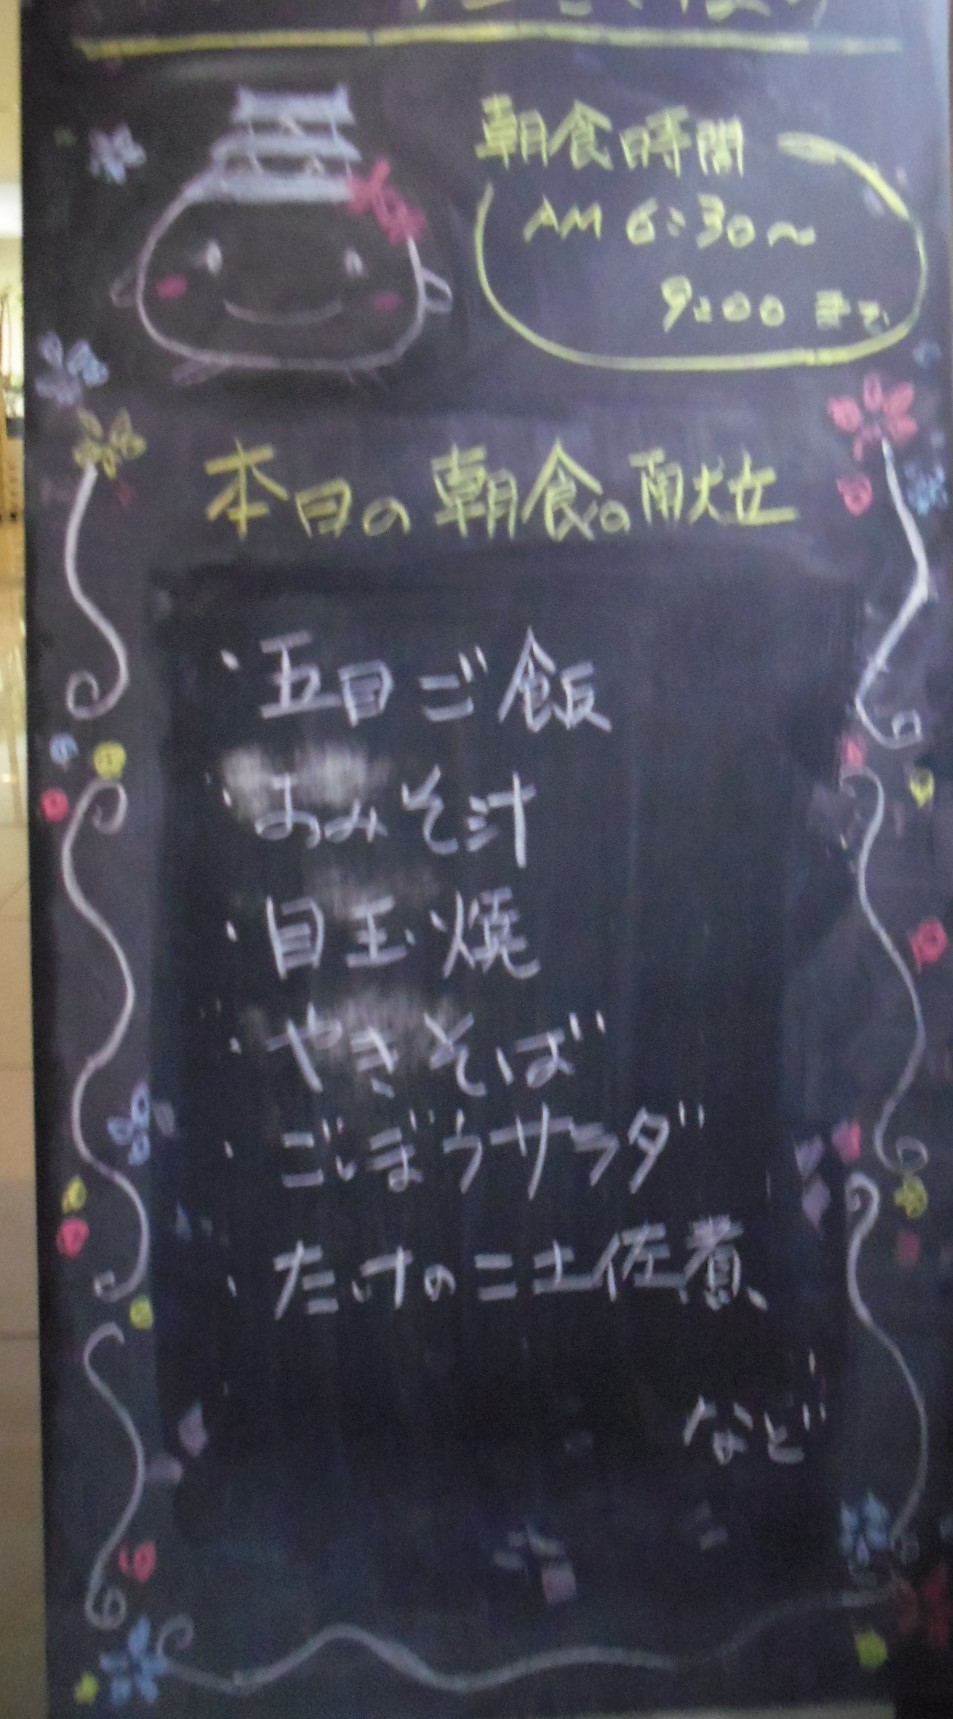 朝食時間
AM 6:30〜
9:00 まで
本日の朝食の献立
・五目ご飯
・おみそ汁
・目玉焼
・やきそば
・ごぼうサラダ
・たけのこ土佐煮
など